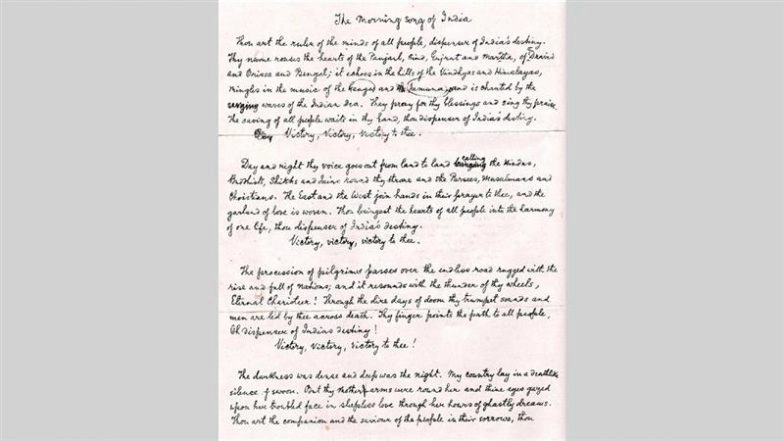 The Morning song of India
Thou art the ruler of the minds of all people, dispenser of India's destiny.
Thy name rouses the hearts of the Panjab, Sind, Gujrat and Maratha, of Dravid
and Orissa and Bengal; it echoes in the hills of the Vindhyas and Himalayas,
mingles in the music of the Ganges and Jamuna and is chanted by the
waves of the Indian Sea. They pray for thy blessings and sing thy praise
The saving of all people waits in thy hand, thou dispenser of India's destiny.
Victory, Victory, victory to thee.
Day and night thy voice goes out from land to land calling the Hindus,
Buddhists, Shikhs and Jains round thy throne and the Parsees, Musalmans and
Christians. The East and the West join hands in their prayer to thee, and the
garland of love is woven. Thou bringest the hearts of all people into the harmony
of one life, thou dispenser of India's destiny.
Victory, victory, victory to thee.
The procession of pilgrims passes over the endless road rugged with the
rise and fall of nations; and it resounds with the thunder of thy wheels,
Eternal Charioteer! Through the dire days of doom thy trumpet sounds and
men are led by thee across death. Thy finger points the path to all people,
Oh dispenser of India's destiny!
Victory, victory, victory to thee!
The darkness was dense and deep was the night. My country lay in a deathlike
silence of swoon. But thy mother arms were round her and thine eyes gazed
upon her troubled face in sleepless love through her hours of ghastly dreams.
Thou art the companion and the saviour of the people in their sorrows, thou